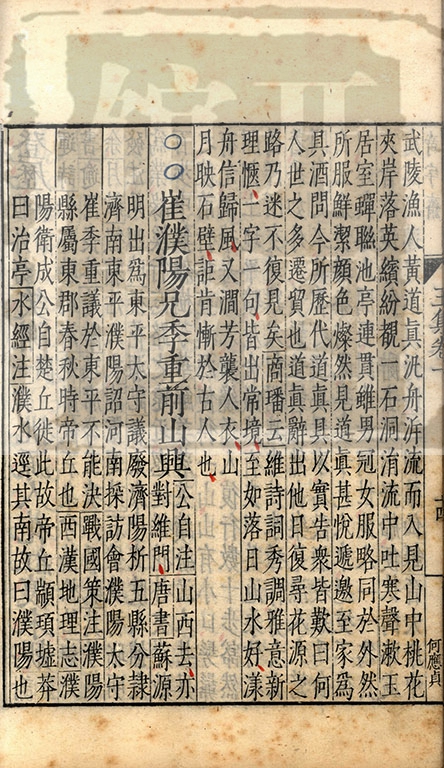 武陵漁人黃道眞汎舟泝流而入見山中桃花
夾岸落英繽紛覩一石洞涓流中吐寒聲漱玉
居室蟬聯池亭連貫雖男冠女服略同於外然
所服鮮潔顏色燦然見道眞甚悅遞邀至家爲
具酒問今所歷代道眞具以實告衆皆歎曰何
人世之多遷貿也道眞辭出他日復尋花源之
路乃迷不復見矣商璠云維詩詞秀調雅意新
理愜一字一句皆出常境至如落日山水好漾
舟信歸風又澗芳襲人衣山
月映石壁詎肯慚於古人也
○○崔濮陽兄季重前山興公自注山西去亦對維門唐書蘇源
明出爲東平太守議廢濟陽析五縣分隷
濟南東平濮陽詔河南採訪會濮陽太守
崔季重議於東平不能決戰國策注濮陽
縣屬東郡春秋時帝丘也西漢地理志濮
陽衛成公自楚丘徙此故帝丘顓頊墟莽
曰治亭水經注濮水逕其南故曰濮陽也
四
何應貞